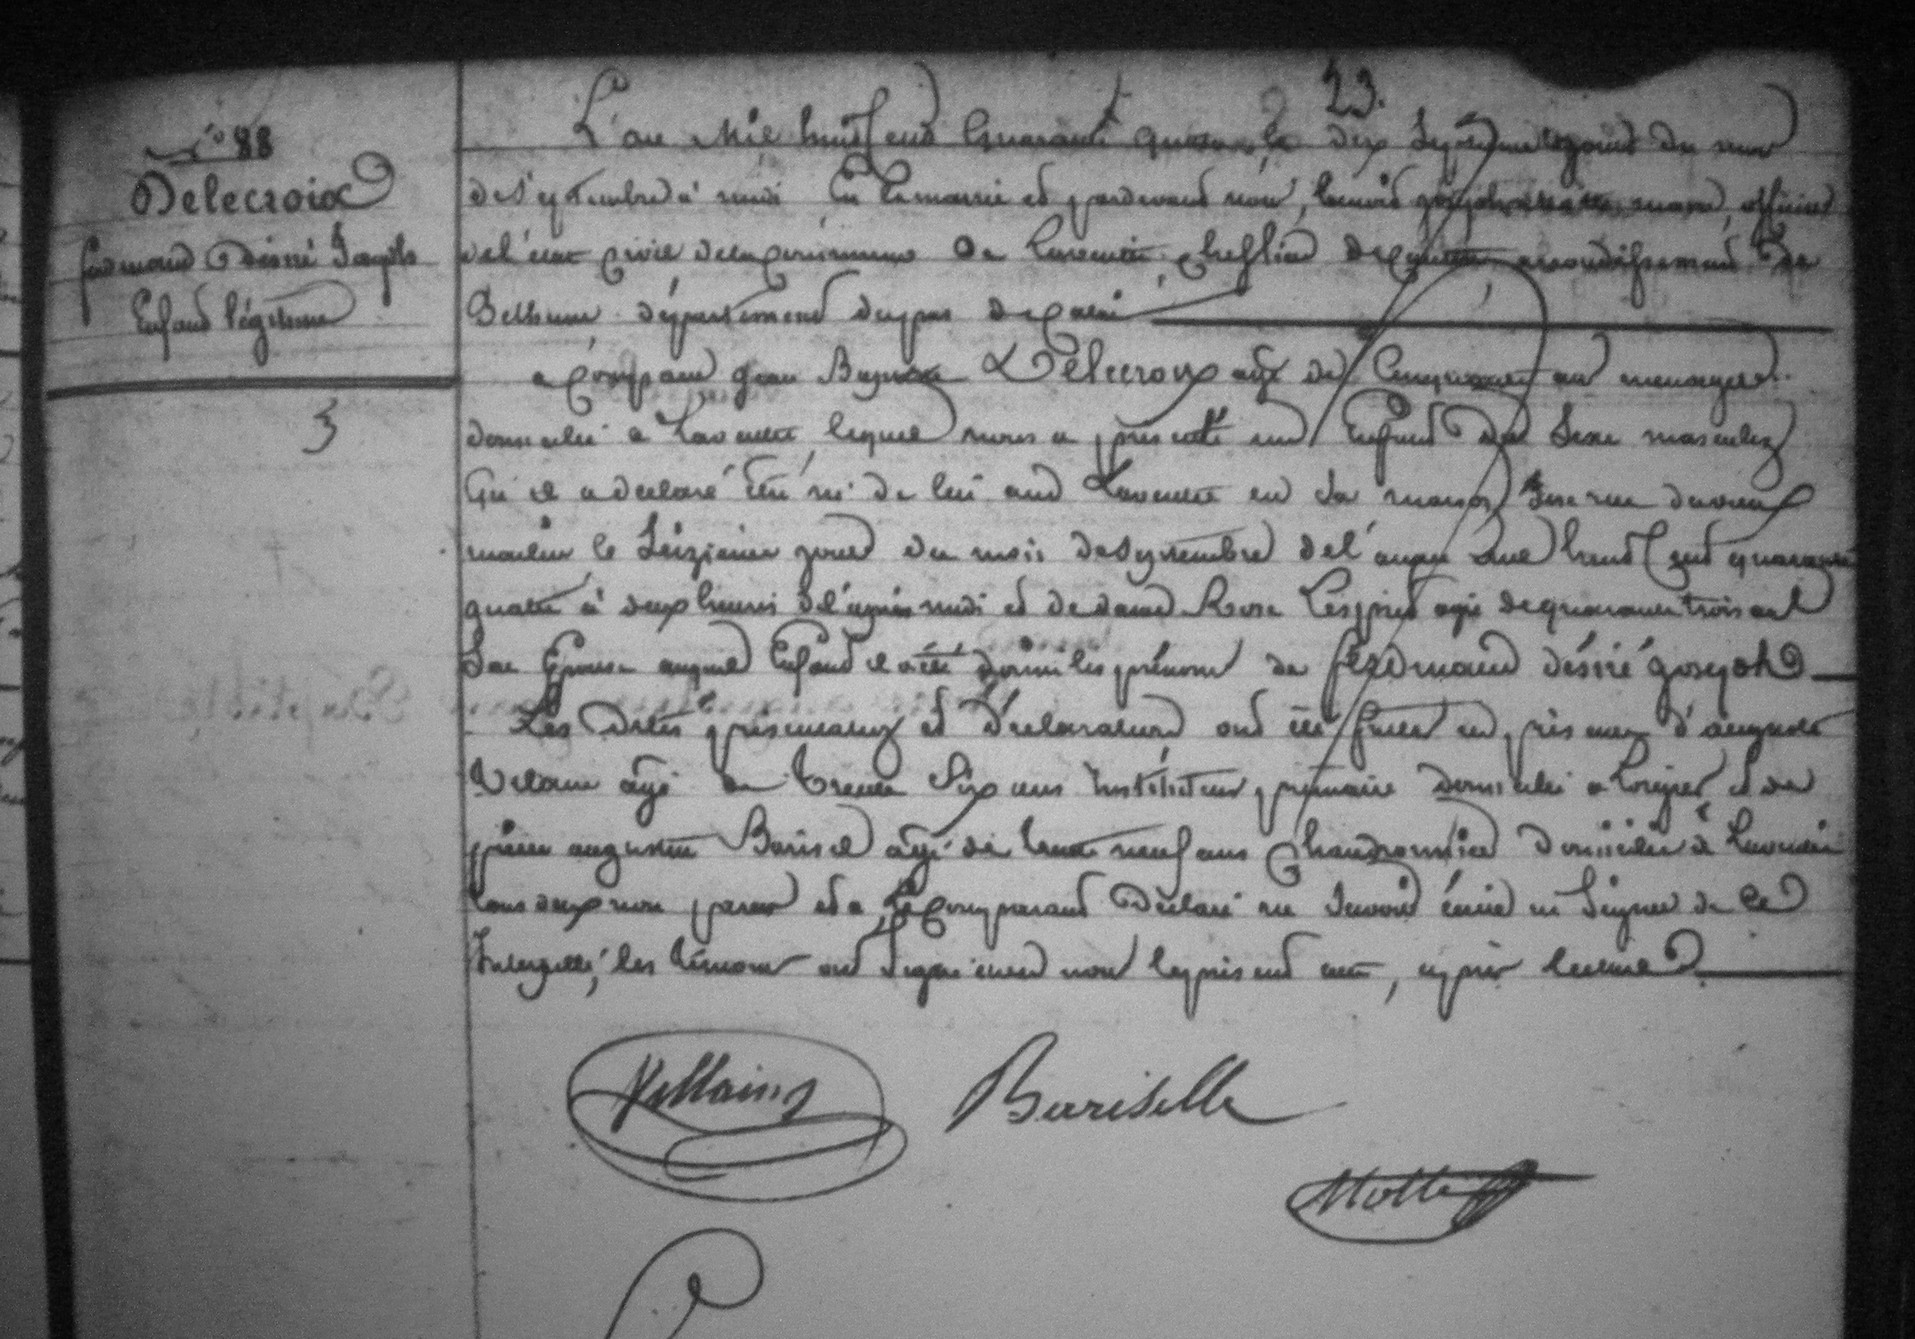 23.
N° 88
Delecroix
ferdinand Désiré Joseph
Enfant légitime
3
L'an Mil huit Cent Quarante Quatre le dix Septième jour du mois
de Septembre à midi En la mairie et pardevant nous, maire, officier
de l'état Civil de la Commune de Laventie, Chef lieu de Canton arrondissement de
Bethune département du pas de Calais
a Comparu Jean Baptiste Delecroix agé de ans menager
domicilié a Laventie lequel nous a présenté un Enfant du Sexe masculin
Qu'il a declaré être né de lui aud Laventie en Sa maison Sise rue du vieux
moulin le Seizième jour du mois de Septembre de l'année Mil huit Cent quarante
quatre à deux heures de l'après midi et de dame Rose Lespriet agée de quarante trois ans
Son Epouse auquel Enfant il a été donné les prénoms de ferdinand désiré joseph
Les Dites présentation et Déclaration ont été faites en présence d'auguste
Vilain âgé de trente Six ans Instituteur primaire domicilié a et de
pierre augustin Barisel âgé de trente neuf ans Chaudronnier Domicilié à Laventie
tous deux non parens et a le Comparant Déclaré ne Savoir écrire ni Signer de Ce
Interpellé, les témoins ont Signé avec nous le présent acte, après lecture
Villain
Bariselle